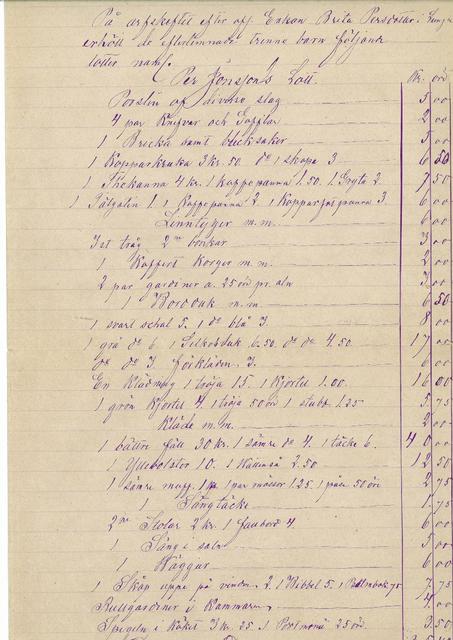 På arfskiftet efter afl. Enkan Brita Persdotter i
erhöll de efterlemnade trenne barn följande
lotter näml.
Per Jönsson's Lott. Kr. öre
Porslin af diverse slag 5 00
4 par Knifvar och Gafflar 2 00
1 Bricka samt blecksaker 5 00
1 Kopparkruka 3 kr. 50 do 1 skopa 3 6 50
1 Thekanna 4 kr. 1 kaffepanna 1.50. 1 Gryta 2. 7 50
1 1 1 Kaffepanna 2 1 Kopparpanna 3. 6 00
Linntyger m.m. 6 00
3 st tråg 2ne bunkar 3 00
1 Koffert Korgar m.m. 2 00
2 par gardiner a. 25 öre pr. aln 3 00
1 Bordduk m.m. 6 50
1 svart schal 5. 1 do blå 3. 8 00
1 grå do 6 1 Silkesduk 6.50. do do 4.50 17 00
do do 3. Förkläden 3. 6 00
En Klädning 1 tröja 15. 1 Kjortel 1.00. 16 00
1 grön Kjortel 4. 1 tröja 50 öre 1 stubb 1.25 5.75
Kläde m.m. 2 00
1 bättre fäll 30 kr. 1 sämre do 4. 1 täcke 6. 40 00
1 Yllebolster 10. 1 2.50 12 50
1 sämre muff. 1 kr 1 par mössor 1.25 1 påse 50 öre 2 75
1 Sängtäcke 1.75
2ne Stolar 2 kr. 1 4. 6 00
1 Säng i saln 5 00
1 Väggur 6 00
1 Skåp uppe på vinden. 2. 1 Bibbel 5. 1 Psalmbok 75 7.75
Rullgardiner i Kammaren 4.00
Spegeln i Köket 3 kr. 25. 1 Portmonä 25 öre. 3.50